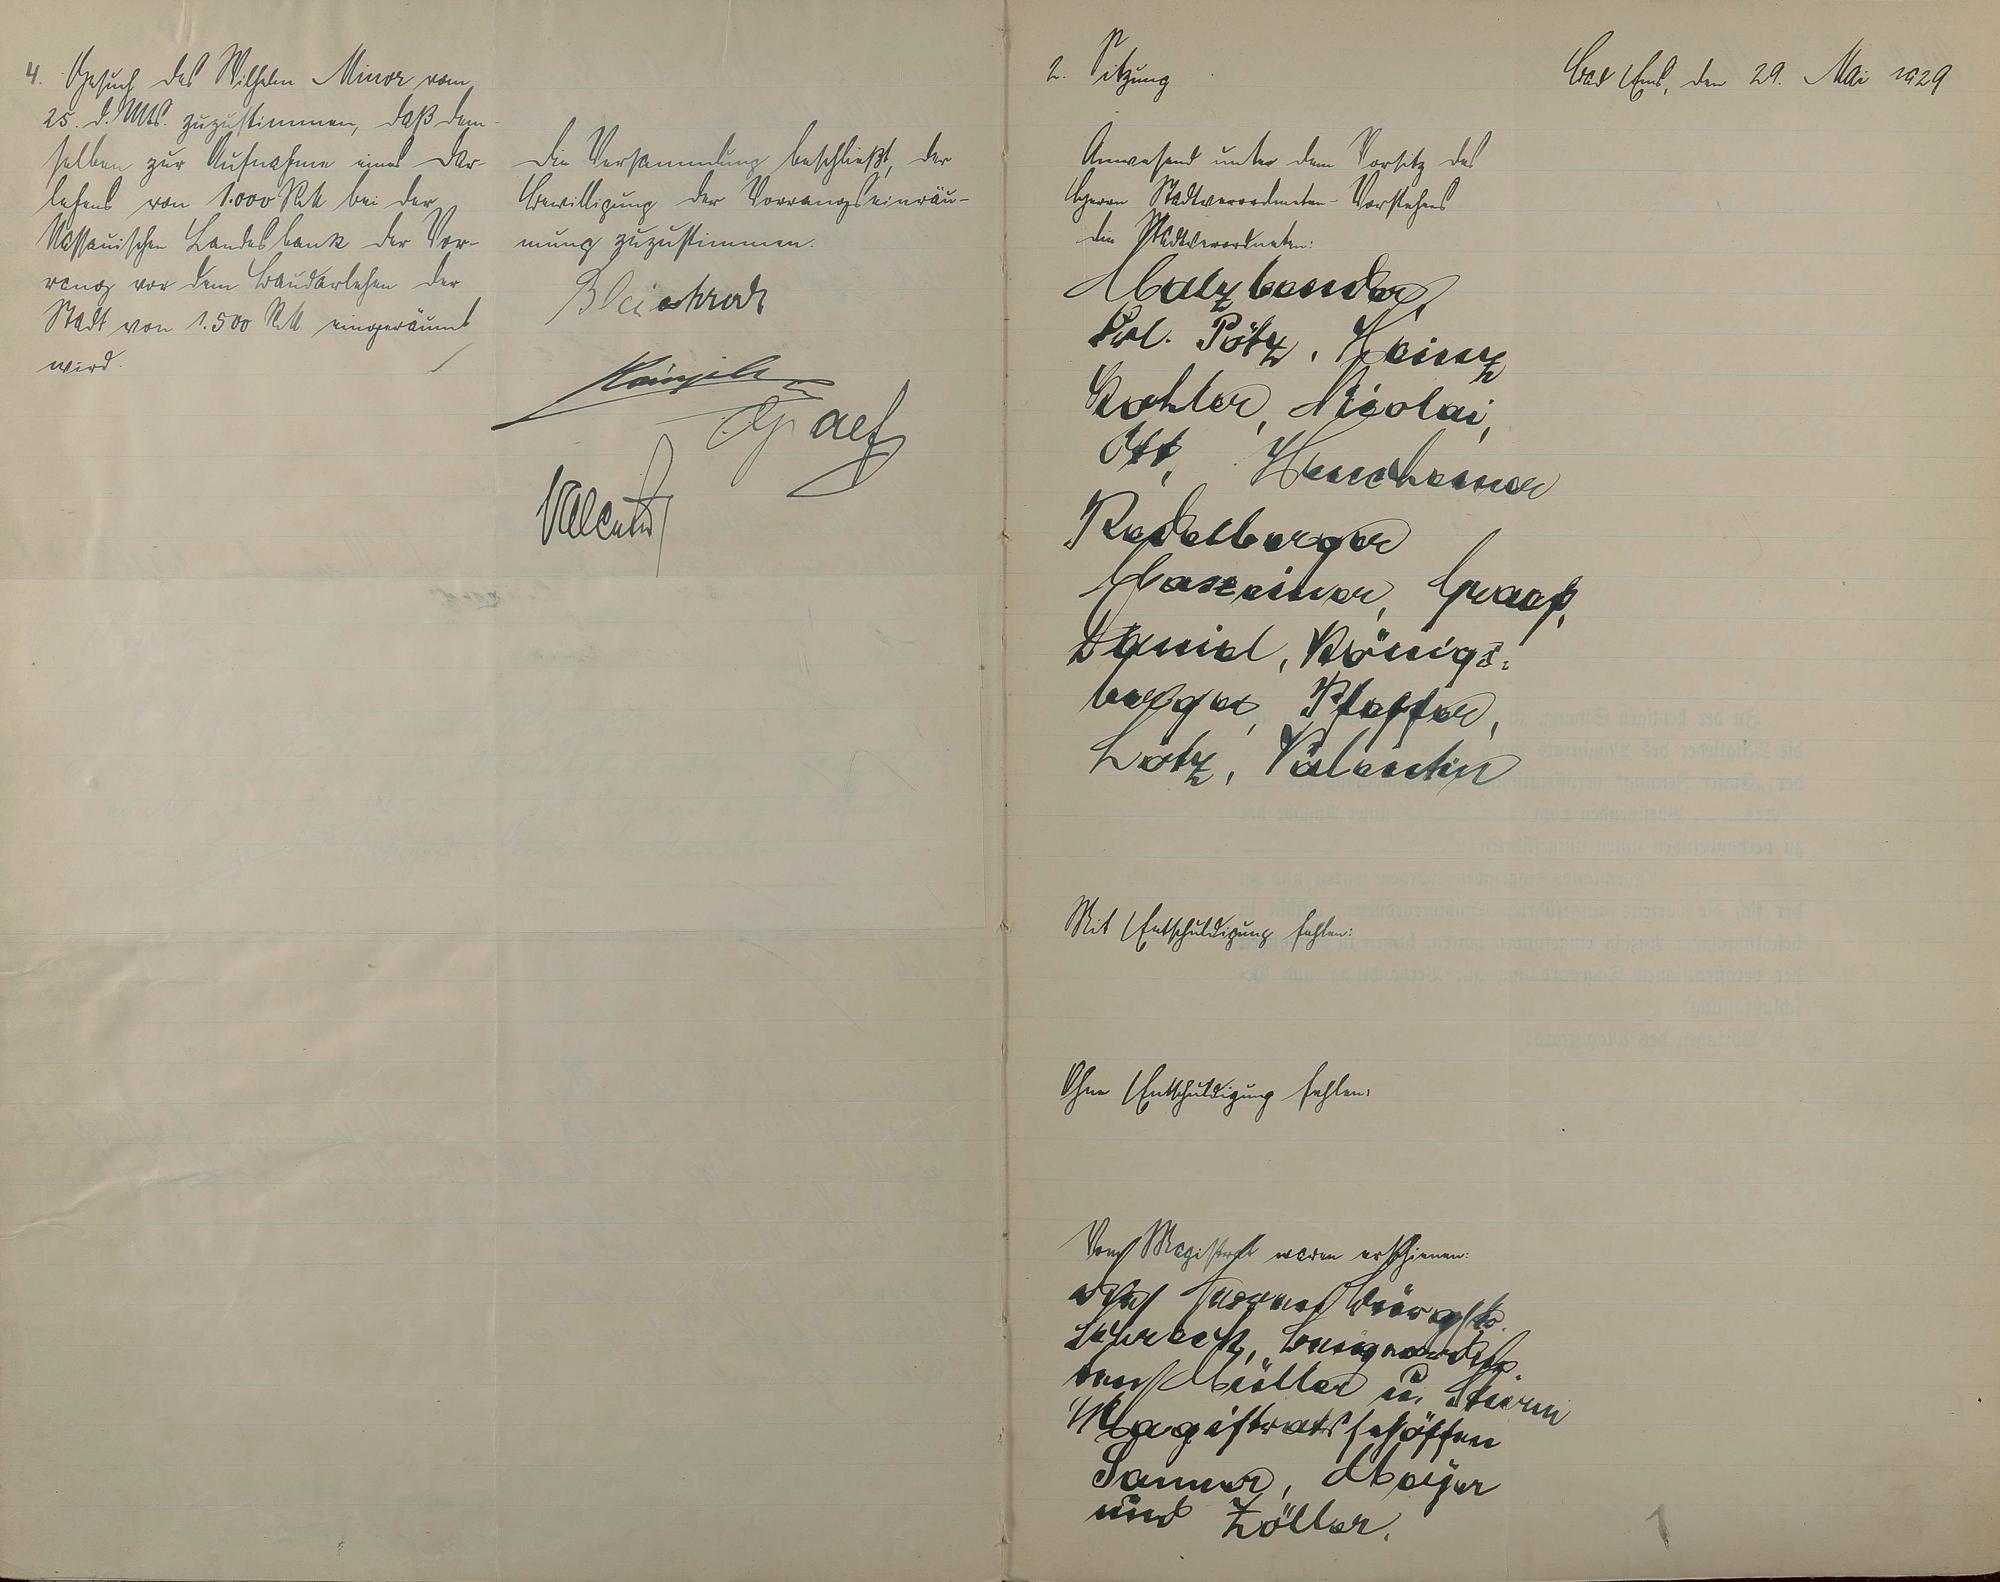 4. Gesuch des Wilhelm Minor vom
25. d. Mts. zuzustimmen, daß dem-
selben zur Aufnahme eines Dar-
lehens von 1.000 RM bei der
Nassauischen Landesbank der Vor-
rang vor dem Baudarlehen der
Stadt von 1.500 RM eingeräumt
wird.
Die Versammlung beschließt, der
Bewilligung der Vorrangseinräu-
mung zuzustimmen.
Graef
Valentin
2. Sitzung
Bad Ems, den 29. Mai 1929
Anwesend unter dem Vorsitz des
Herrn Stadtverordneten-Vorstehers
die Stadtverordneten:
Frl. Pötz, Heinz
Kohler, Nicolai,
Ott,
Redelberger
Graef,
Daniel, Königs-
berger, Pfeffer,
Lotz, Valentin
Mit Entschuldigung fehlen:
Ohne Entschuldigung fehlen:
Vom Magistrat waren erschienen:
die Herren Bürgstr.
Schreck, Beigeord-
ten Müller u. Sturm
Magistratsschöffen
Sanner, Meyer
und Zöller.
1